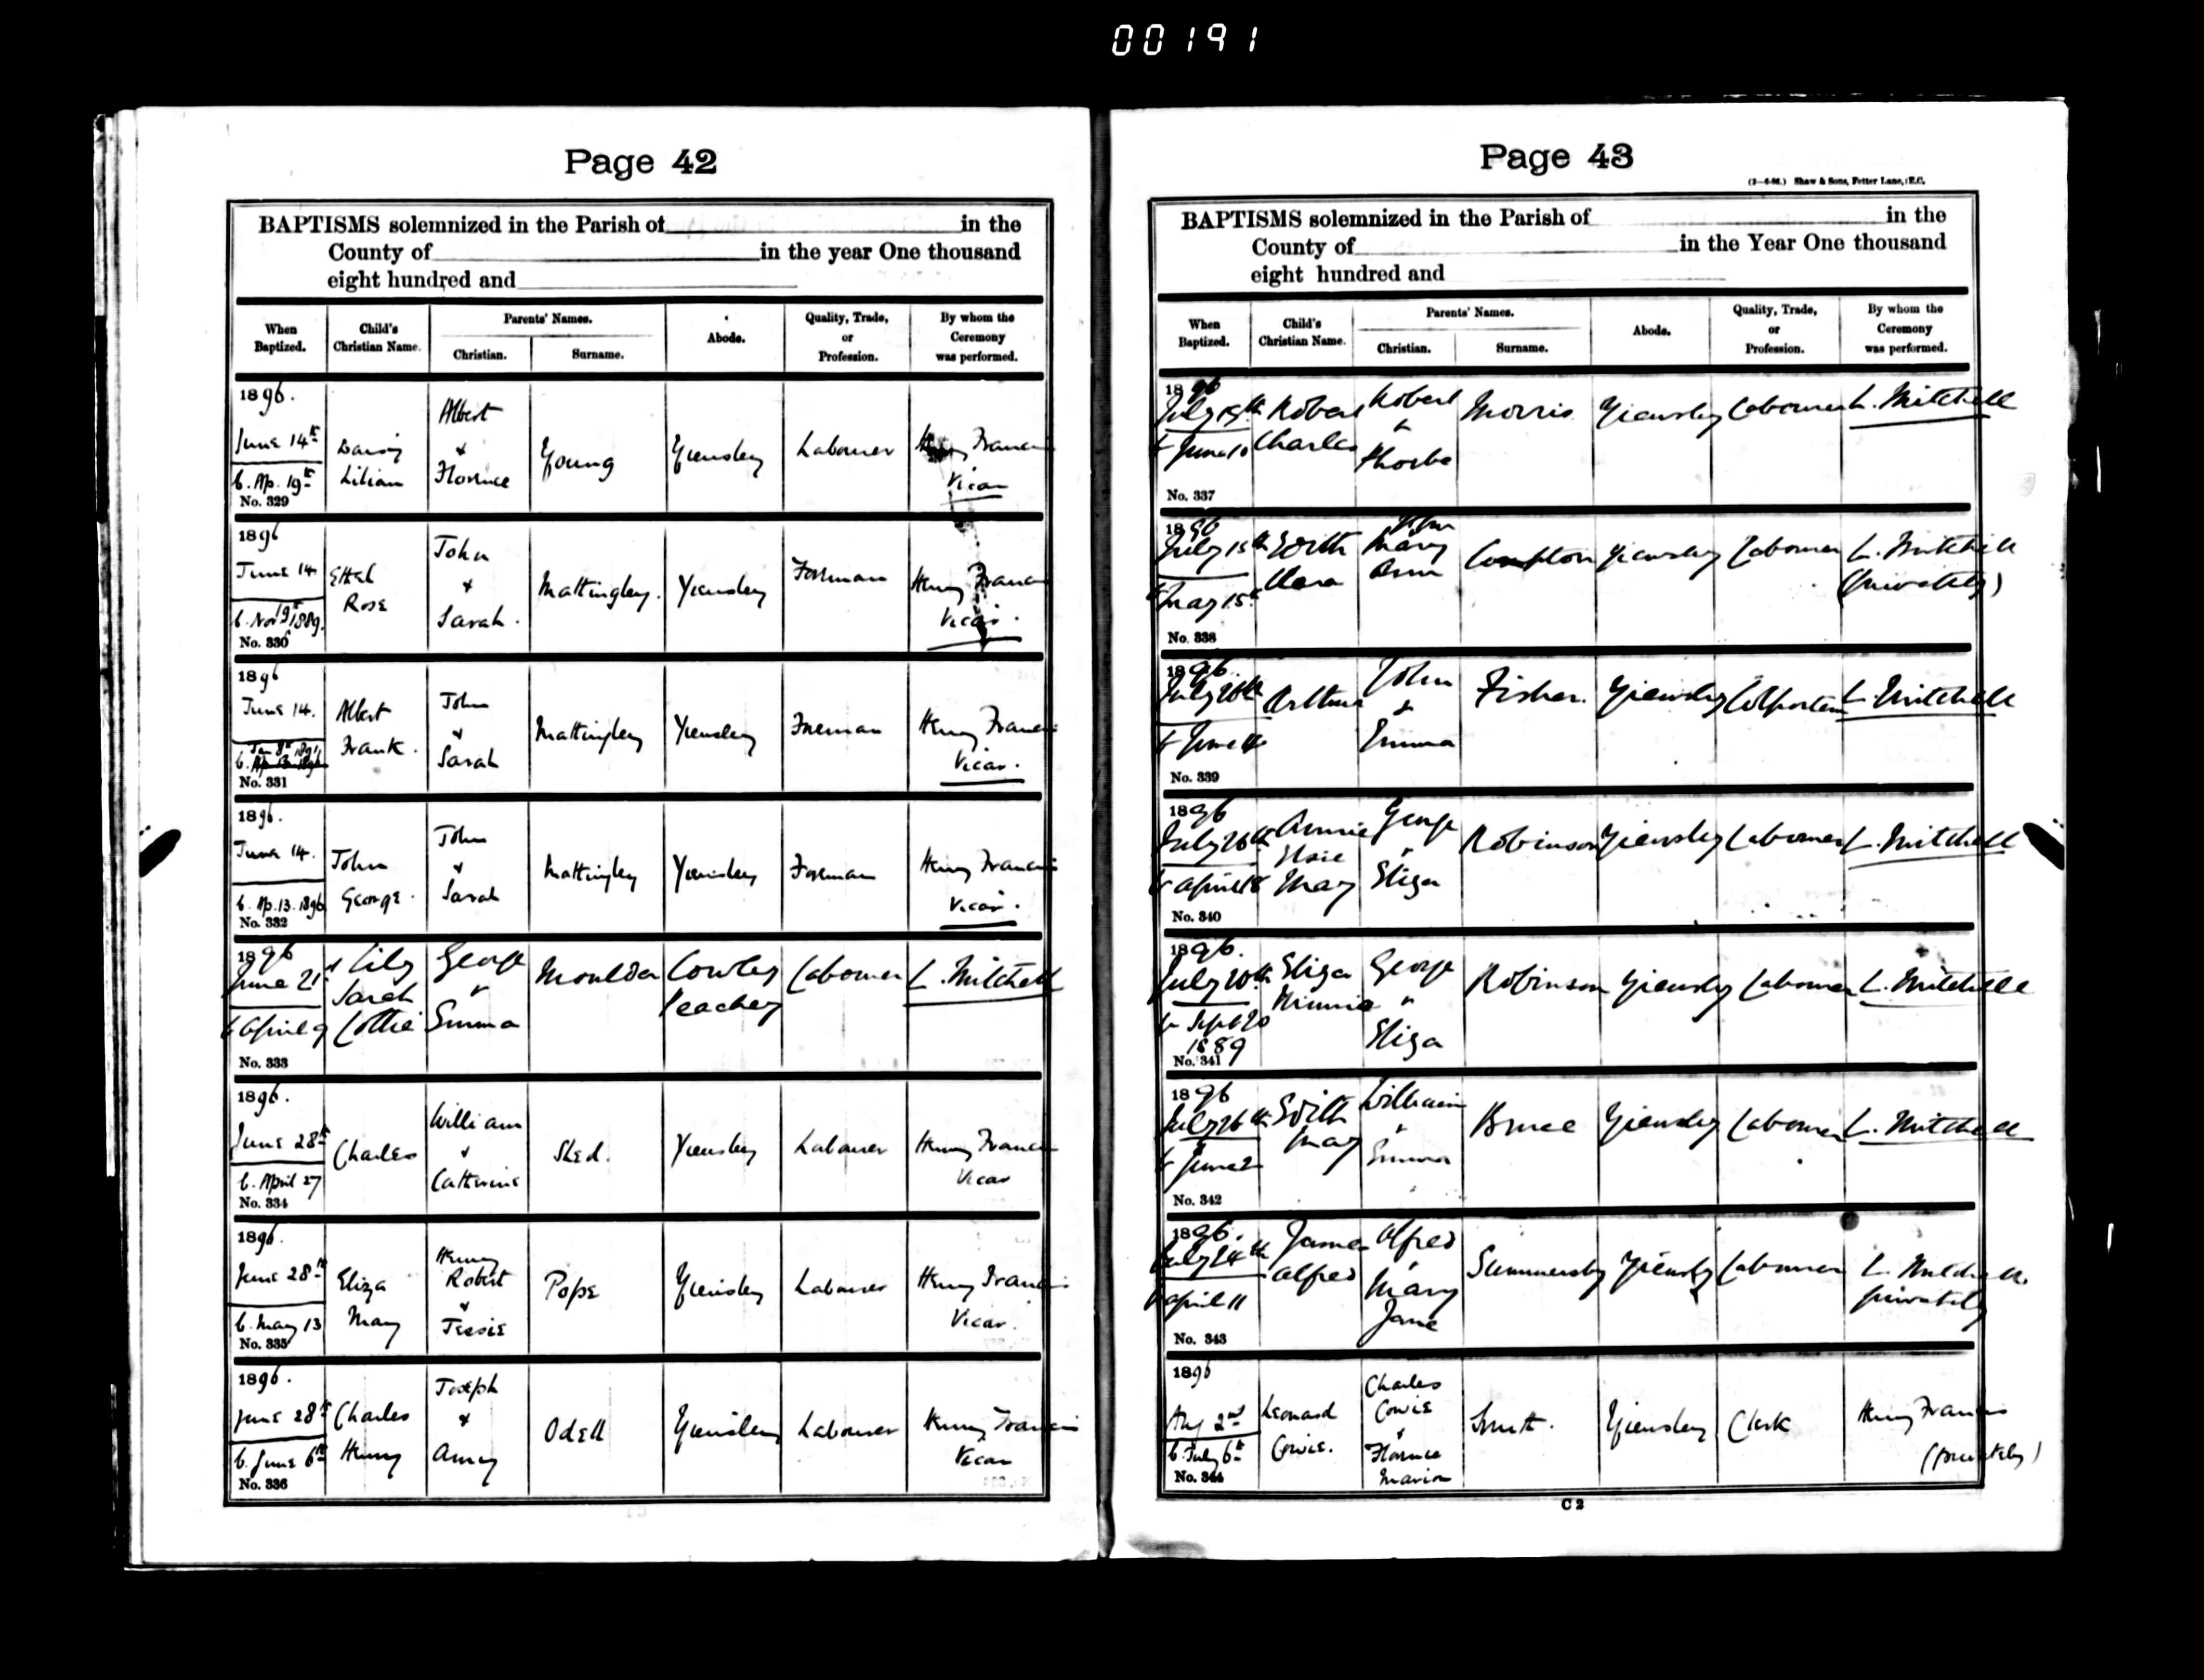 00191
Page 42
BAPTISMS solemnized in the Parish of in the
County of in the year One thousand
eight hundred and
When Baptized. Child's Christian Name. Parents' Names. Christian. Surname. Abode. Quality, Trade, or Profession. By whom the Ceremony was performed.
1896.
June 14th Daisy Albert & Young Yiewsley Labourer Henry Francis
b. Ap. 19th Lilian Florence Vicar
No. 329
1896
June 14 Ethel John & Mattingley. Yiewsley Foreman Henry Francis
b. Nov 19th 1889. Rose Sarah. Vicar.
No. 330
1896
June 14. Albert John & Mattingley Yiewsley Foreman Henry Francis
b. Jan 8th 1891 Frank. Sarah Vicar.
No. 331
1896.
June 14. John John & Mattingley Yiewsley Foreman Henry Francis
b. Ap. 13. 1896 George. Sarah Vicar.
No. 332
1896
June 21st Lily George & Moulder Cowley Labourer L. Mitchell
Sarah Peachey
b April 9 Lottie Emma
No. 333
1896.
June 28th Charles William & Shed. Yiewsley Labourer Henry Francis
b. April 27 Catherine Vicar
No. 334
1896.
June 28th Eliza Henry Robert & Pope Yiewsley Labourer Henry Francis
b. May 13 May Jessie Vicar.
No. 335
1896.
June 28th Charles Joseph & Odell Yiewsley Labourer Henry Francis
b. June 6th Henry Amey Vicar
No. 336
Page 43
(2—6-86.) Shaw & Sons, Fetter Lane, E.C.
BAPTISMS solemnized in the Parish of in the
County of in the Year One thousand
eight hundred and
When Baptized. Child's Christian Name. Parents' Names. Christian. Surname. Abode. Quality, Trade, or Profession. By whom the Ceremony was performed.
1896
July Robert Robert & Morris Yiewsley Labourer L. Mitchell
b June 10 Charles Phoebe
No. 337
1896
July 15th Edith John Mary Compton Yiewsley Labourer L. Mitchell
b May 15th Clara Ann (privately)
No. 338
1896.
July 26th Arthur John & Fisher. Yiewsley L. Mitchell
b June Emma
No. 339
1896
July 26th Annie George & Robinson Yiewsley Labourer L. Mitchell
Elsie
b April 18 May Eliza
No. 340
1896.
July Eliza George & Robinson Yiewsley Labourer L. Mitchell
b Sept 20 Minnie Eliza
1889
No. 341
1896
July 26th Edith William & Bruce Yiewsley Labourer L. Mitchell
b June 2 May Emma
No. 342
1896.
July 24th James Alfred & Summersby Yiewsley Labourer L. Mitchell
b April 11 Alfred Mary Jane privately
No. 343
1896
Aug 2nd Leonard Charles Cowie & Smith. Yiewsley Clerk Henry Francis
b. July 6th Cowie. Florence Marion (privately)
No. 344
C 2